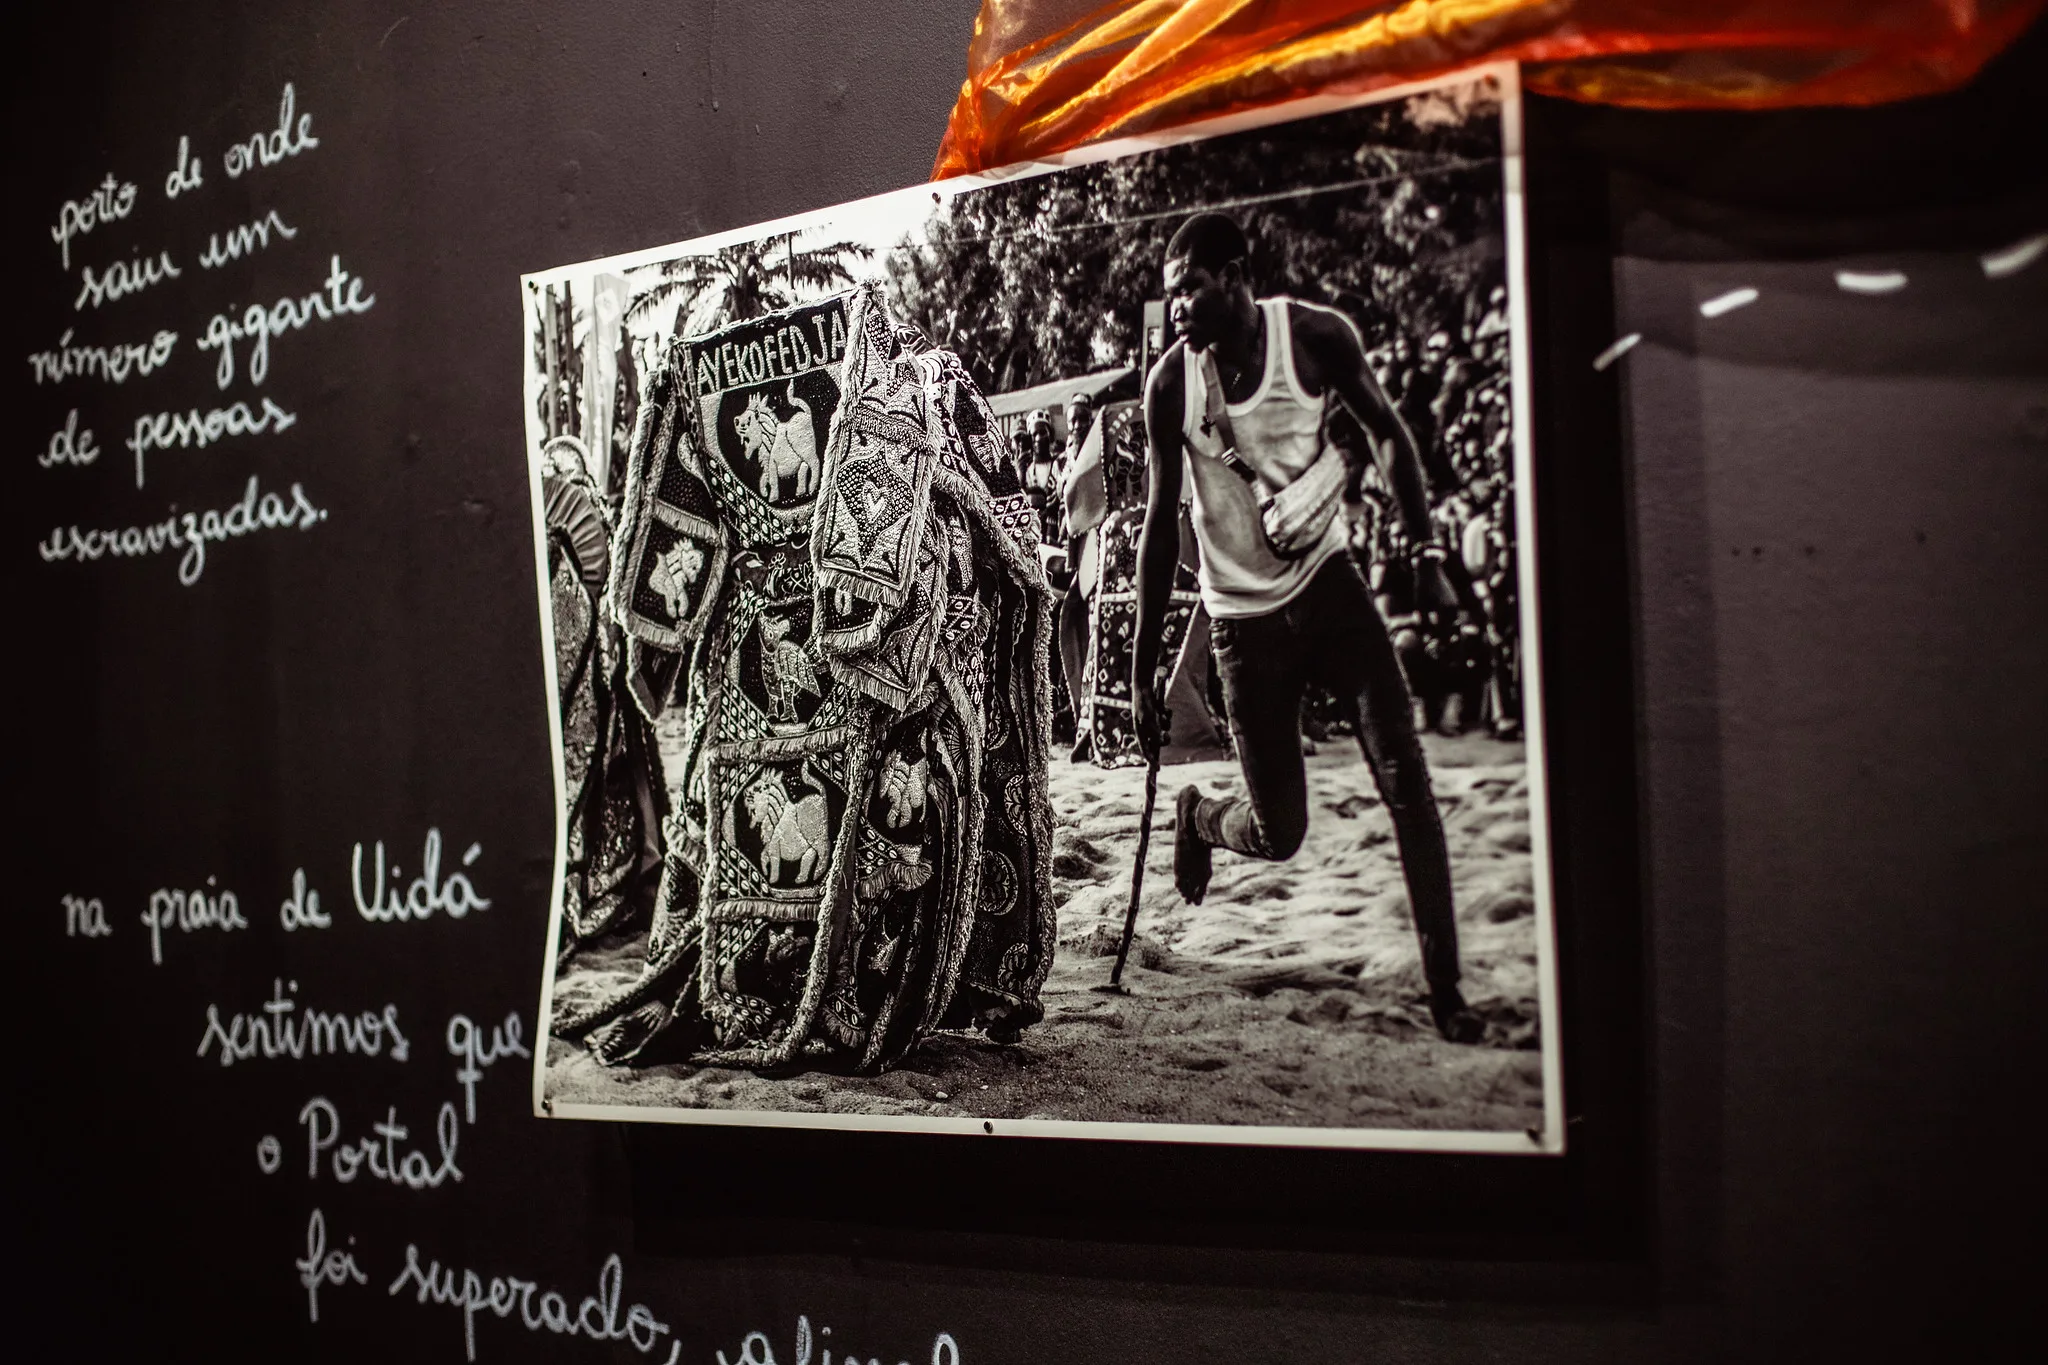 porto de onde
saiu um
número gigante
de pessoas
escravizadas.
na praia de Uidá
sentimos que
o Portal
foi superado,
AYEKOFEDJA